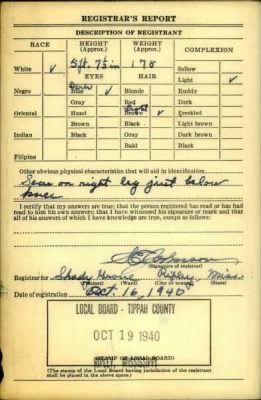 REGISTRAR'S REPORT
DESCRIPTION OF REGISTRANT
RACE
HEIGHT (Approx.)
WEIGHT (Approx.)
COMPLEXION
White ✓
5 ft. 7½ in
170
Sallow
EYES
HAIR
Light ✓
Negro
Dark
Blue ✓
Blonde
Ruddy
Gray
Red
Dark
Oriental
Hazel
light
Brown ✓
Freckled
Brown
Black
Light brown
Indian
Black
Gray
Dark brown
Bald
Black
Filipino
Other obvious physical characteristics that will aid in identification
Scar on right leg just below
knee
I certify that my answers are true; that the person registered has read or has had
read to him his own answers; that I have witnessed his signature or mark and that
all of his answers of which I have knowledge are true, except as follows:
(Signature of registrar)
Registrar for Shady Grove Ripley Miss
(Precinct) (Ward) (City or county) (State)
Date of registration Oct. 16, 1940
LOCAL BOARD - TIPPAH COUNTY
OCT 19 1940
(STAMP OF LOCAL BOARD)
RIPLEY, MISSISSIPPI
(The stamp of the Local Board having jurisdiction of the registrant
shall be placed in the above space.)